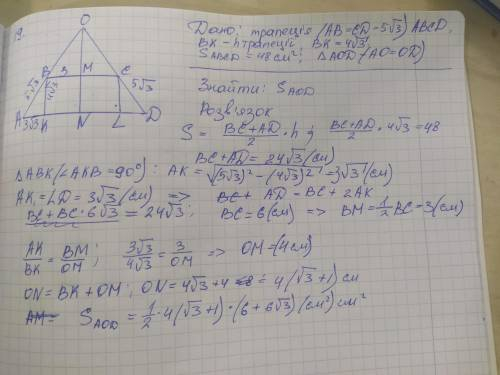 9.
O
B 3 M C
5√3 4√3 5√3
A 3√3 K N L D
Дано: трапеція (AB=CD=5√3) ABCD,
BK - h трапеції BK=4√3,
S_ABCD = 48 см²; ΔAOD (AO=OD)
Знайти: S_AOD
Розв'язок
S = (BC+AD)/2 · h ; (BC+AD)/2 · 4√3 = 48
BC+AD = 24√3 (см)
ΔABK (∠AKB=90°): AK = √((5√3)² - (4√3)²) = 3√3 (см)
AK = LD = 3√3 (см) => BC + AD = BC + 2AK
BC + BC · 6√3 = 24√3; BC = 6 (см) => BM = 1/2 BC = 3 (см)
AK/BK = BM/OM; 3√3/4√3 = 3/OM => OM = (4см)
ON = BK + OM; ON = 4√3 + 4 = 4(√3+1) см
S_AOD = 1/2 · 4(√3+1) · (6+6√3) (см²) см²